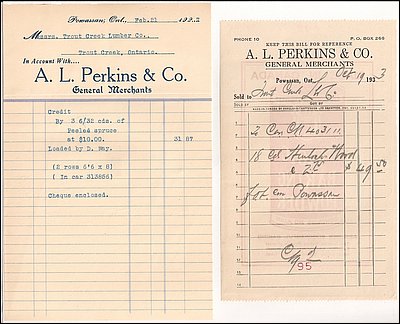 Powassan, Ont., Feb. 21 1932
Messrs. Trout Creek Lumber Co.
Trout Creek, Ontario.
In Account With....
A. L. Perkins & Co.
General Merchants
Credit
By 3 6/32 cds. of
Peeled spruce
at $10.00. 31 87
Loaded by D. Way.
(2 rows 6'6 x 8)
(In car 313856)
Cheque enclosed.
PHONE 10 P. O. BOX 266
KEEP THIS BILL FOR REFERENCE
A. L. PERKINS & CO.
GENERAL MERCHANTS
Powassan, Ont., Oct 19 1933
Sold to Trout Creek L Co.
SOLD BY
To Car CN 403111
18 Cd Hemlock Wood
$ 49 50
fob car Powassan
95